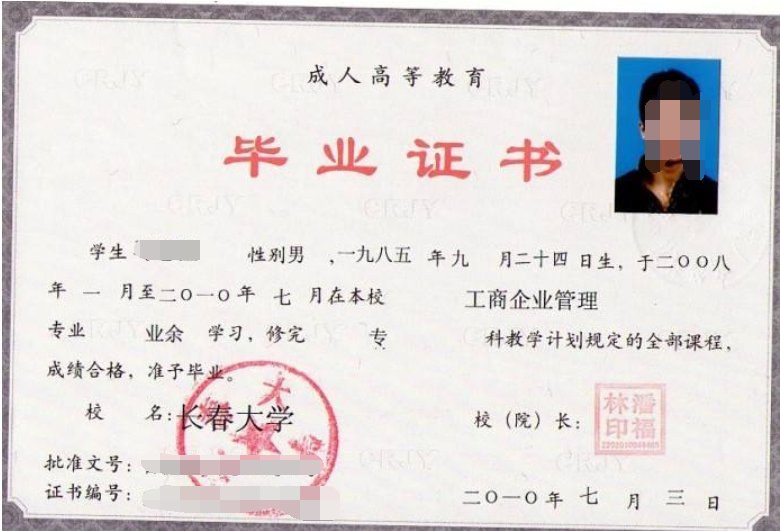 成人高等教育
毕业证书
学生 性别男 ,一九八五 年九 月二十四日生, 于二〇〇八
年 一 月至二〇一〇年 七 月在本校 工商企业管理
专业 业余 学习, 修完 专 科教学计划规定的全部课程,
成绩合格, 准予毕业。
校 名:长春大学
校 (院) 长:
潘福林印
批准文号:
证书编号:
二〇一〇年 七 月 三 日